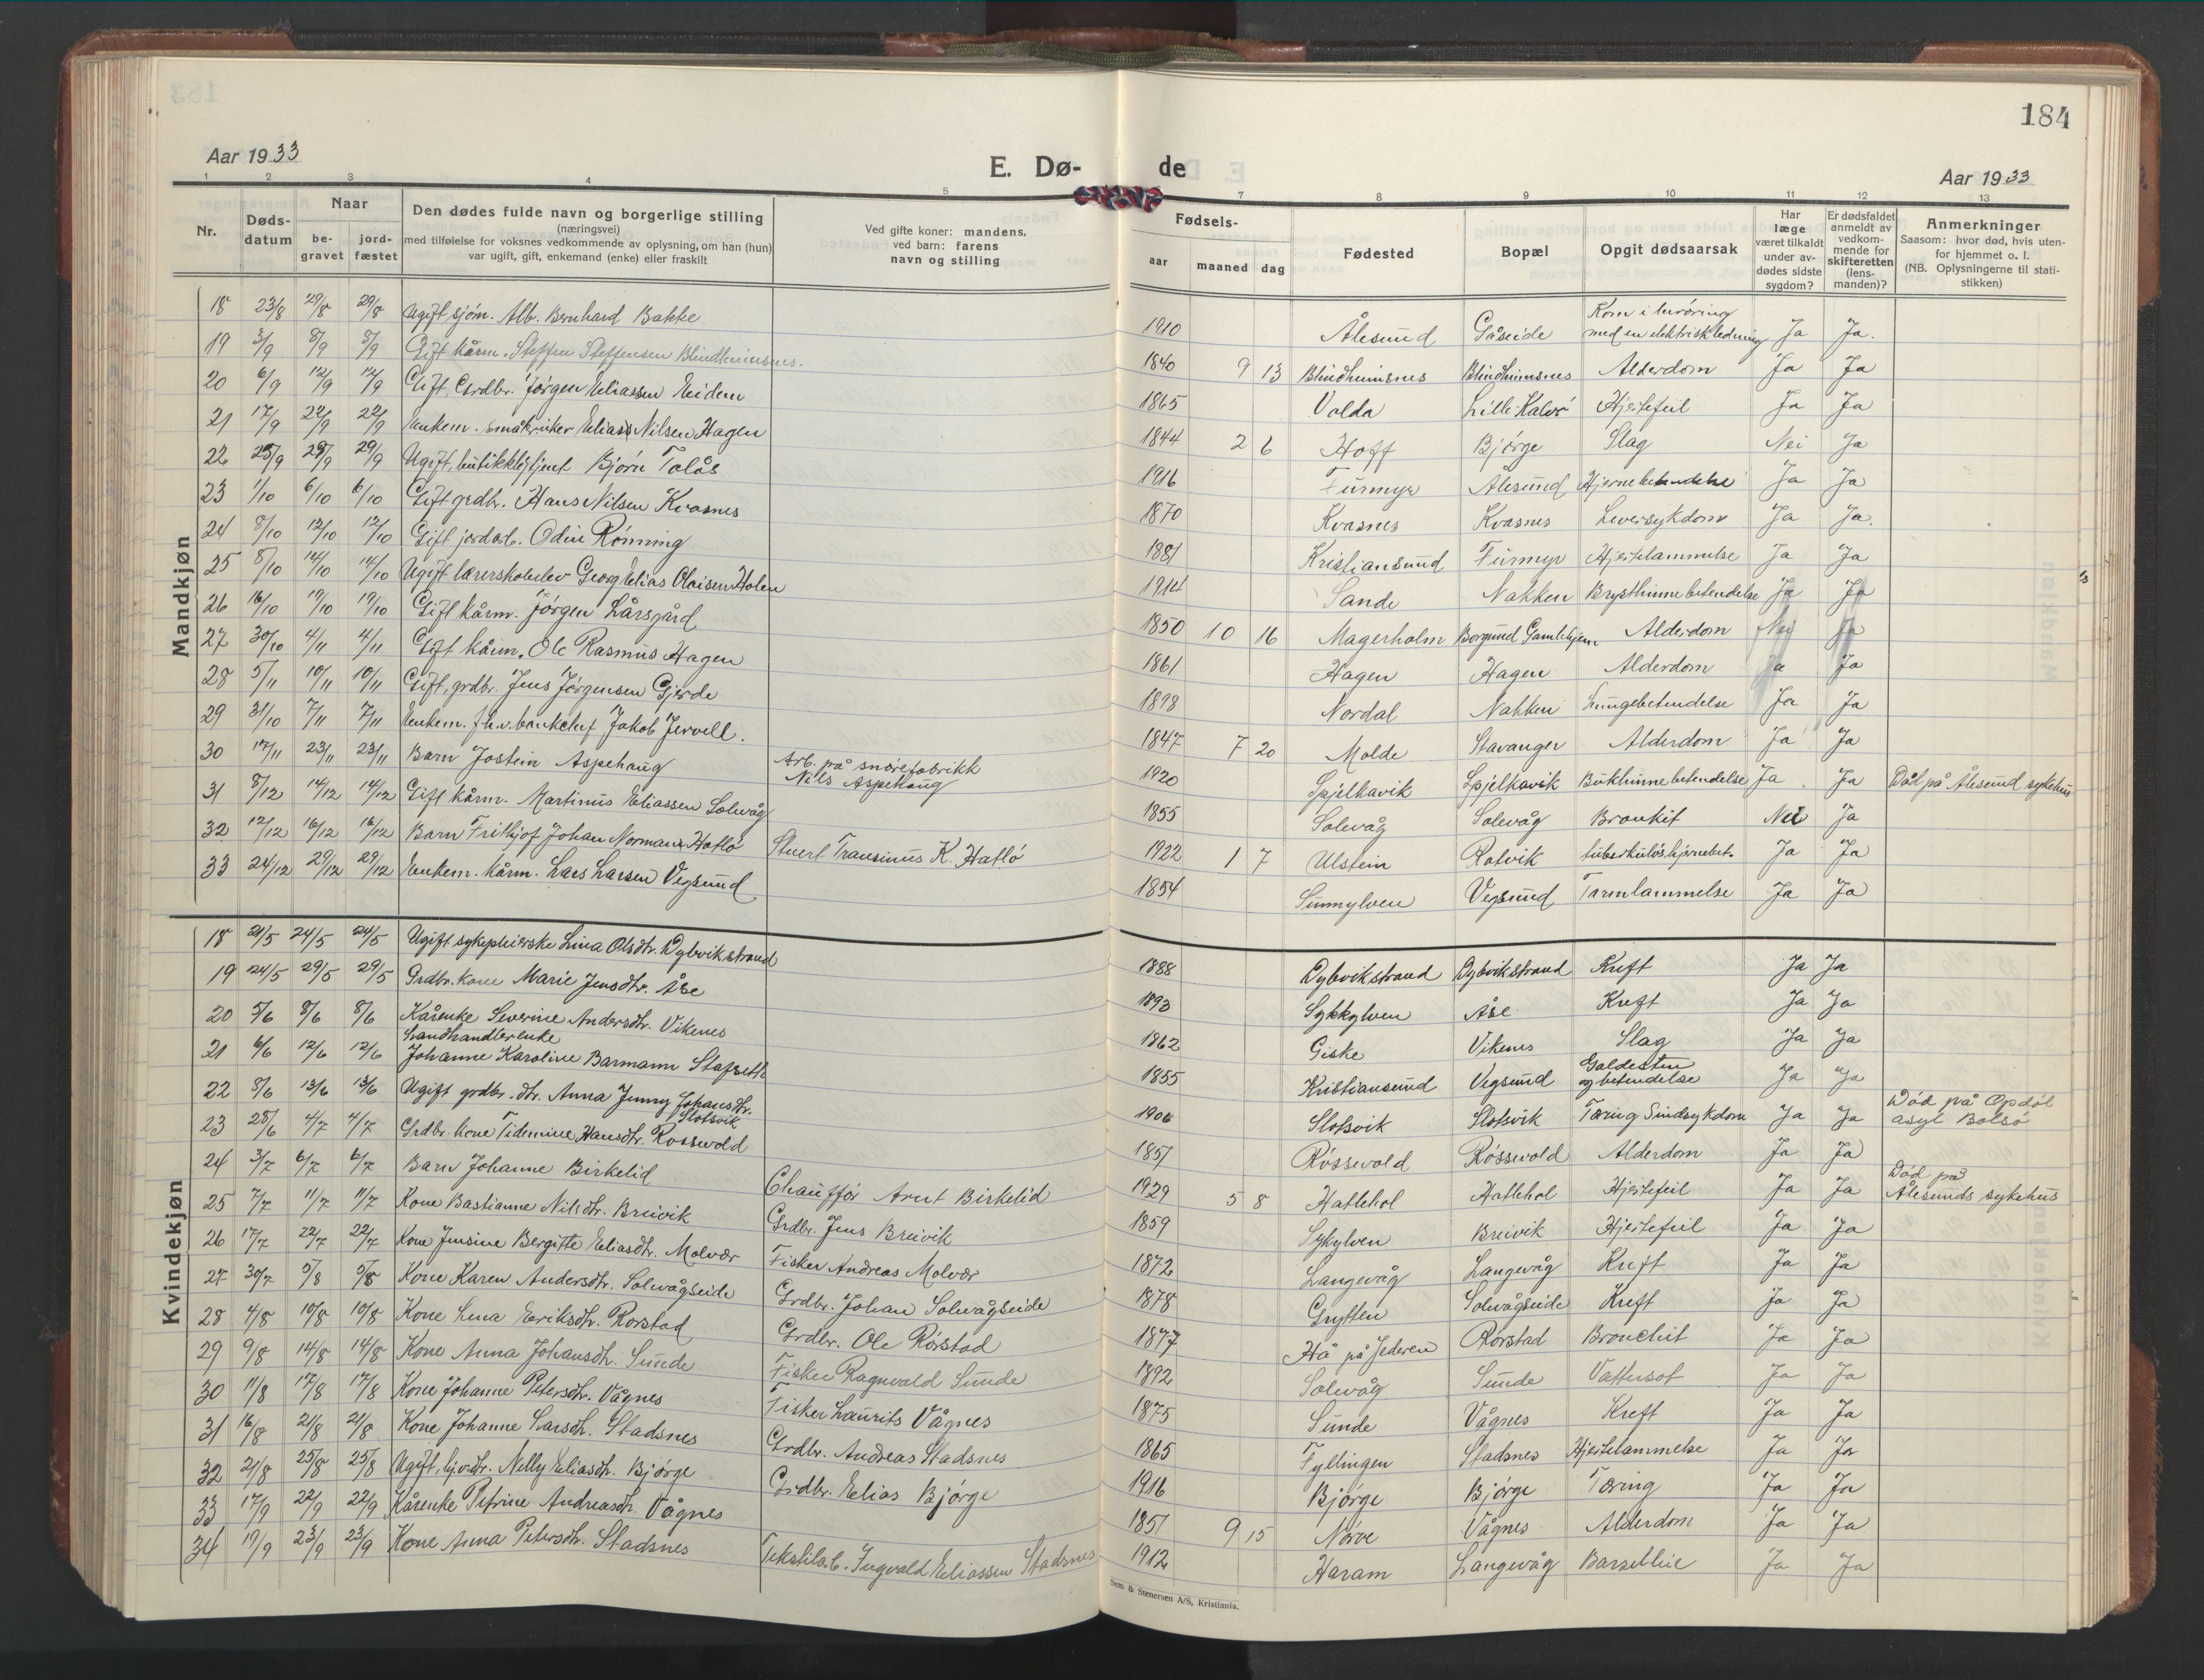 184
Aar 1933
E. Dø-
de
Aar 1933
1 2 3 4 5 7 8 9 10 11 12 13
Nr.
Døds-
datum
Naar
be-
gravet
jord-
fæstet
Den dødes fulde navn og borgerlige stilling
(næringsvei)
med tilføielse for voksnes vedkommende av oplysning, om han (hun)
var ugift, gift, enkemand (enke) eller fraskilt
Ved gifte koner: mandens,
ved barn: farens
navn og stilling
Fødsels-
aar maaned dag
Fødested
Bopæl
Opgit dødsaarsak
Har
læge
været tilkaldt
under av-
dødes sidste
sygdom?
Er dødsfaldet
anmeldt av
vedkom-
mende for
skifteretten
(lens-
manden)?
Anmerkninger
Saasom: hvor død, hvis uten-
for hjemmet o. l.
(NB. Oplysningerne til stati-
stikken)
Mandkjøn
18 23/8 29/8 29/8 Ugift sjøm. Alb. Bernhard Bakke 1910 Ålesund Gåseide Kom i berøring med en elektrisk ledning Ja Ja.
19 3/9 8/9 8/9 Gift kårm. Steffen Steffensen Blindheimsnes. 1840 9 13 Blindheimsnes Blindheimsnes Alderdom Ja Ja
20 6/9 12/9 12/9 Gift Grdbr. Jørgen Eliassen Eidem 1865 Volda Lille Kalvø Hjertefeil Ja Ja
21 17/9 22/9 22/9 Enkem. småbruker Elias Nilsen Hagen 1844 2 6 Hoff Bjørge Slag Nei Ja
22 25/9 29/9 29/9 Ugift, butikkbetjent Bjørn Tolås 1916 Furmyr Ålesund Hjernebetendelse Ja Ja
23 1/10 6/10 6/10 Gift grdbr. Hans Nilsen Kvasnes 1870 Kvasnes Kvasnes Leversykdom Ja Ja.
24 8/10 12/10 12/10 Gift jordarb. Odin Rønning 1881 Kristiansund Furmyr Hjertelammelse Ja Ja
25 8/10 14/10 14/10 Ugift lærerskoleelev Georg Elias Olaisen Holen 1914 Sande Nakken Brysthinnebetendelse Ja Ja
26 16/10 19/10 19/10 Gift kårm. Jørgen Lårsgård 1850 10 16 Magerholm Borgund Gamlehjem Alderdom Nei Ja
27 30/10 4/11 4/11 Gift kårm. Ole Rasmus Hagen 1861 Hagen Hagen Alderdom Ja Ja
28 5/11 10/11 10/11 Gift, grdbr. Jens Jørgensen Gjerde 1878 Nordal Nakken Lungebetendelse Ja Ja
29 31/10 7/11 7/11 Enkem. fh.v. bankchef Jakob Jervell. 1847 7 20 Molde Stavanger Alderdom Ja Ja
30 17/11 23/11 23/11 Barn Jostein Aspehaug Arb. på snørefabrikk Nils Aspehaug 1920 Spjelkavik Spjelkavik Bukhinnebetendelse Ja Ja Død på Ålesund sykehus
31 8/12 14/12 14/12 Gift kårm. Martinus Eliassen Solevåg 1855 Solevåg Solevåg Bronkit Nei Ja
32 12/12 16/12 16/12 Barn Frithjof Johan Norman Hatlø Stuert Transinus K. Hatlø 1922 1 7 Ulstein Ratvik tuberkuløs hjernebet. Ja Ja
33 24/12 29/12 29/12 Enkem. kårm. Lars Larsen Vegsund 1854 Sunnylven Vegsund Tarmlammelse Ja Ja
Kvindekjøn
18 21/5 24/5 24/5 Ugift sykepleierske Lina Olsdtr. Dybvikstrand 1888 Dybvikstrand Dybvikstrand Kreft Ja Ja
19 24/5 29/5 29/5 Grdbr. kone Marie Jensdtr. Åse 1893 Sykkylven Åse Kreft Ja Ja
20 5/6 8/6 8/6 Kårenke Severine Andersdtr. Vikenes 1862 Giske Vikenes Slag Ja Ja
21 6/6 12/6 12/6 Landhandlerenke Johanne Karoline Barmann Stafseth 1855 Kristiansund Vegsund Galdesten og betendelse Ja Ja
22 8/6 13/6 13/6 Ugift grdbr. dtr. Anna Jenny Johansdtr. Slotsvik 1906 Slotsvik Slotsvik Tæring Sindsykdom Ja Ja Død på Opdøl asyl Bolsø
23 28/6 4/7 4/7 Grdbr. kone Tidemine Hansdtr. Rosswold 1857 Røsswold Røsswold Alderdom Ja Ja
24 3/7 6/7 6/7 Barn Johanne Birkelid Chauffør Arnt Birkelid 1929 5 8 Hatlehol Hatlehol Hjertefeil Ja Ja Død på Ålesunds sykehus
25 7/7 11/7 11/7 Kone Bastianne Nilsdtr. Breivik Grdbr. Jens Breivik 1859 Sykylven Breivik Hjertefeil Ja Ja
26 17/7 22/7 22/7 Kone Jensine Bergitte Eliasdtr. Molvær Fisker Andreas Molvær 1872 Langevåg Langevåg Kreft Ja Ja
27 30/7 5/8 5/8 Kone Karen Andersdtr. Solevågseide Grdbr. Johan Solevågseide 1878 Grytten Solevågseide Kreft Ja Ja
28 4/8 10/8 10/8 Kone Lena Eriksdtr. Rørstad Grdbr. Ole Rørstad 1877 Hå på Jederen Rørstad Bronchit Ja Ja
29 9/8 14/8 14/8 Kone Anna Johansdtr. Sunde Fisker Ragnvald Sunde 1892 Solevåg Sunde Vattersot Ja Ja
30 11/8 17/8 17/8 Kone Johanne Petersdtr. Vågnes Fisker Laurits Vågnes 1875 Sunde Vågnes Kreft Ja Ja
31 16/8 21/8 21/8 Kone Johanne Larsdtr. Stadsnes Grdbr. Andreas Stadsnes 1865 Fyllingen Stadsnes Hjertelammelse Ja Ja
32 21/8 25/8 25/8 Ugift, hj.v.dtr. Nelly Eliasdtr. Bjørge Grdbr. Elias Bjørge 1916 Bjørge Bjørge Tæring Ja Ja
33 17/9 22/9 22/9 Kårenke Petrine Andreasdtr. Vågnes 1851 9 15 Nørve Vågnes Alderdom Ja Ja
34 19/9 23/9 23/9 Kone Anna Petersdtr. Stadsnes Tekstilarb. Ingvald Eliassen Stadsnes 1912 Haram Langevåg Barselfeie Ja Ja
Sem & Stenersen A/S, Kristiania.